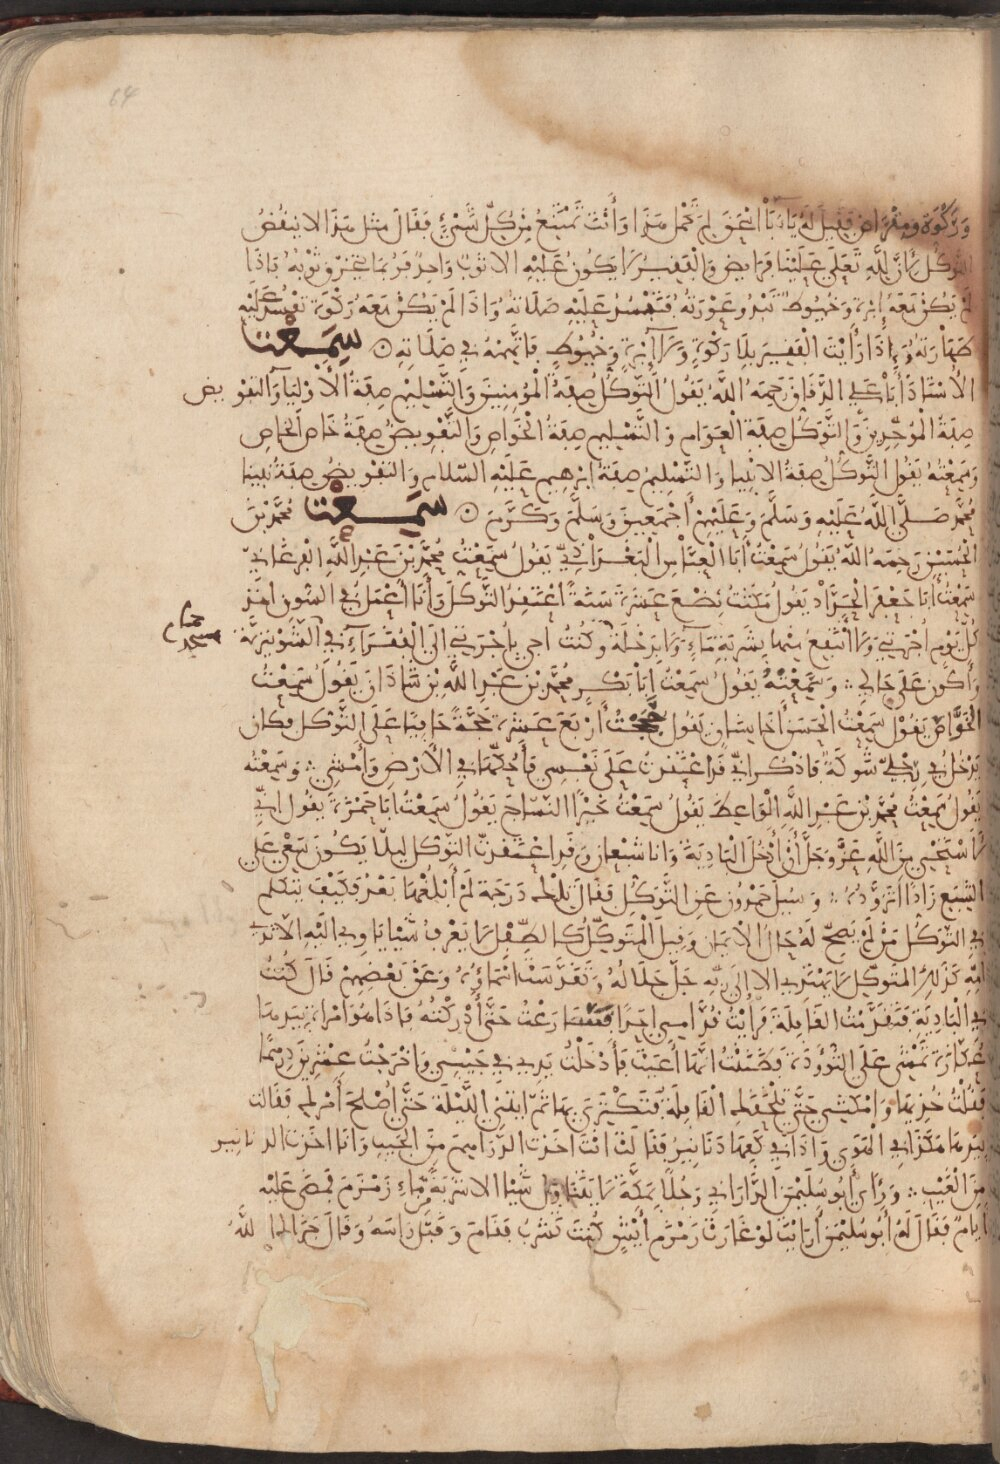 64
وركوة ومقراض فقيل له يا أبا اسحق لم تحمل هذا وأنت تمتنع من كل شيء فقال مثل هذا لا ينقض
التوكل لأن لله تعلى علينا فرايض والفقير لا يكون عليه الا ثوب واحد فربما يتخرق ثوبه فاذا
لم يكن معه إبرة وخيوط تبدو عورته فتفسد عليه صلاته واذا لم يكن معه ركوة تفسد عليه
طهارته واذا رأيت الفقير بلا ركوة ولا إبرة وخيوط فاتهمه في صلاته سمعت
الأستاذ أبا علي الدقاق رحمه الله يقول التوكل صفة المومنين والتسليم صفة الأوليا والتفويض
صفة الموحدين والتوكل صفة العوام والتسليم صفة الخواص والتفويض صفة خاص الخاص
وسمعته يقول التوكل صفة الانبيا والتسليم صفة ابرهيم عليه السلام والتفويض صفة نبينا
محمد صلى الله عليه وسلم وعليهم أجمعين وسلم وكرم سمعت محمد بن
الحسين رحمه الله يقول سمعت أبا العباس البغدادي يقول سمعت محمد بن عبد الله الفرغاني
سمعت أبا جعفر الحداد يقول مكثت بضع عشرة سنة أعتقد التوكل وأنا أعمل في السوق اخذ
كل يوم أجرتي ولا أنتفع منها بشربة ماء ولا بدخلة وكنت اجي باجرتي الى الفقراء في الشونيزية
حمام
مسجد
وأكون على حالي وسمعته يقول سمعت أبا بكر محمد بن عبد الله بن شاذان يقول سمعت
الخواص يقول سمعت الحسن أخا سنان يقول حججت أربع عشرة حجة حافيا على التوكل فكان
يدخل في رجلي شوكة فاذكر اني قد اعتقدت على نفسي فأحكها في الأرض وأمشي وسمعته
يقول سمعت محمد بن عبد الله الواعظ يقول سمعت خيرا النساج يقول سمعت ابا حمزة يقول اني
لأستحيي من الله عز وجل أن أدخل البادية وانا شبعان وقد اعتقدت التوكل ليلا يكون سعي على
الشبع زادا اتزوده وسيل حمدون عن التوكل فقال تلك درجة لم أبلغها بعد وكيف يتكلم
في التوكل من لم يصح له حال الايمان وقيل المتوكل كالطفل لا يعرف شيا ياوي اليه الا ثدي
امه كذلك المتوكل لا يهتدي الا إلى ربه جل جلاله وتقدست اسماؤه وعن بعضهم قال كنت
في البادية فتقدمت القافلة فرأيت قدامي احدا فتسارعت حتى أدركته فاذا هو امراة بيدها
عكازة تمشي على التؤدة فظننت انها أعيت فأدخلت يدي في جيبي واخرجت عشرين درهما
فقلت خذيها وامكثي حتى تلحقك القافلة فتكتري بها ثم ايتني الليلة حتى أصلح أمرك فقالت
بيدها هكذا في الهوى واذا في كفها دنانير فقالت انت اخذت الدراهم من الجيب وانا اخذت الدنانير
من الغيب ورأى أبو سليمن الداراني رجلا بمكة لا يتناول شيا الا شربة من ماء زمزم فمضى عليه
أيام فقال له أبو سليمن أرايت لو غارت زمزم أيش كنت تشرب فقام وقبل راسه وقال جزاك الله